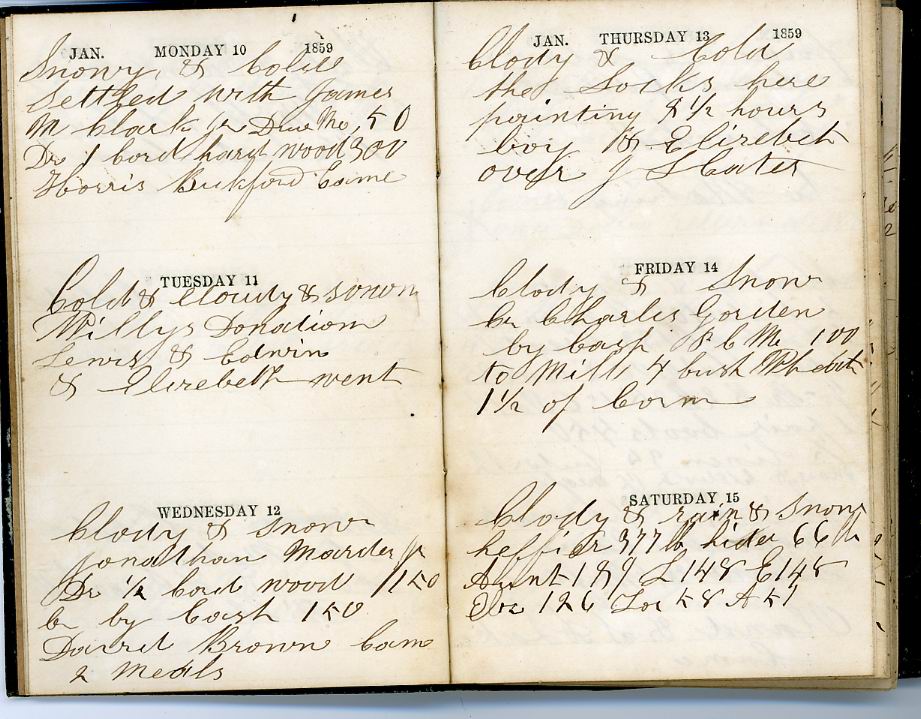 JAN. MONDAY 10 1859
Snowy & Cold
Settled with James
M Clark Due Me, 50
Dr 1 cord hard wood 300
Horris Bickford Came
TUESDAY 11
Cold & Cloudy & snown
Willys Donation
Lewis & Edwin
& Elizebeth went
WEDNESDAY 12
Clody & Snow
Jonathan Marder Jr
Dr ½ Cord wood 150
Cr by Cash 150
David Brown Came
2 Meals
JAN. THURSDAY 13 1859
Clody & Cold
the Socks here
painting 8½ hours
boy & Elizebeth
over J S Cates
FRIDAY 14
Clody & Snow
Cr Charles Gorden
by Cash 100
to Mill 4 bush
1½ of Corn
SATURDAY 15
Clody & rain & Snow
heffier 377 lb hides 66 lb
Aunt 189 L 148 E 148
126 58 A 51